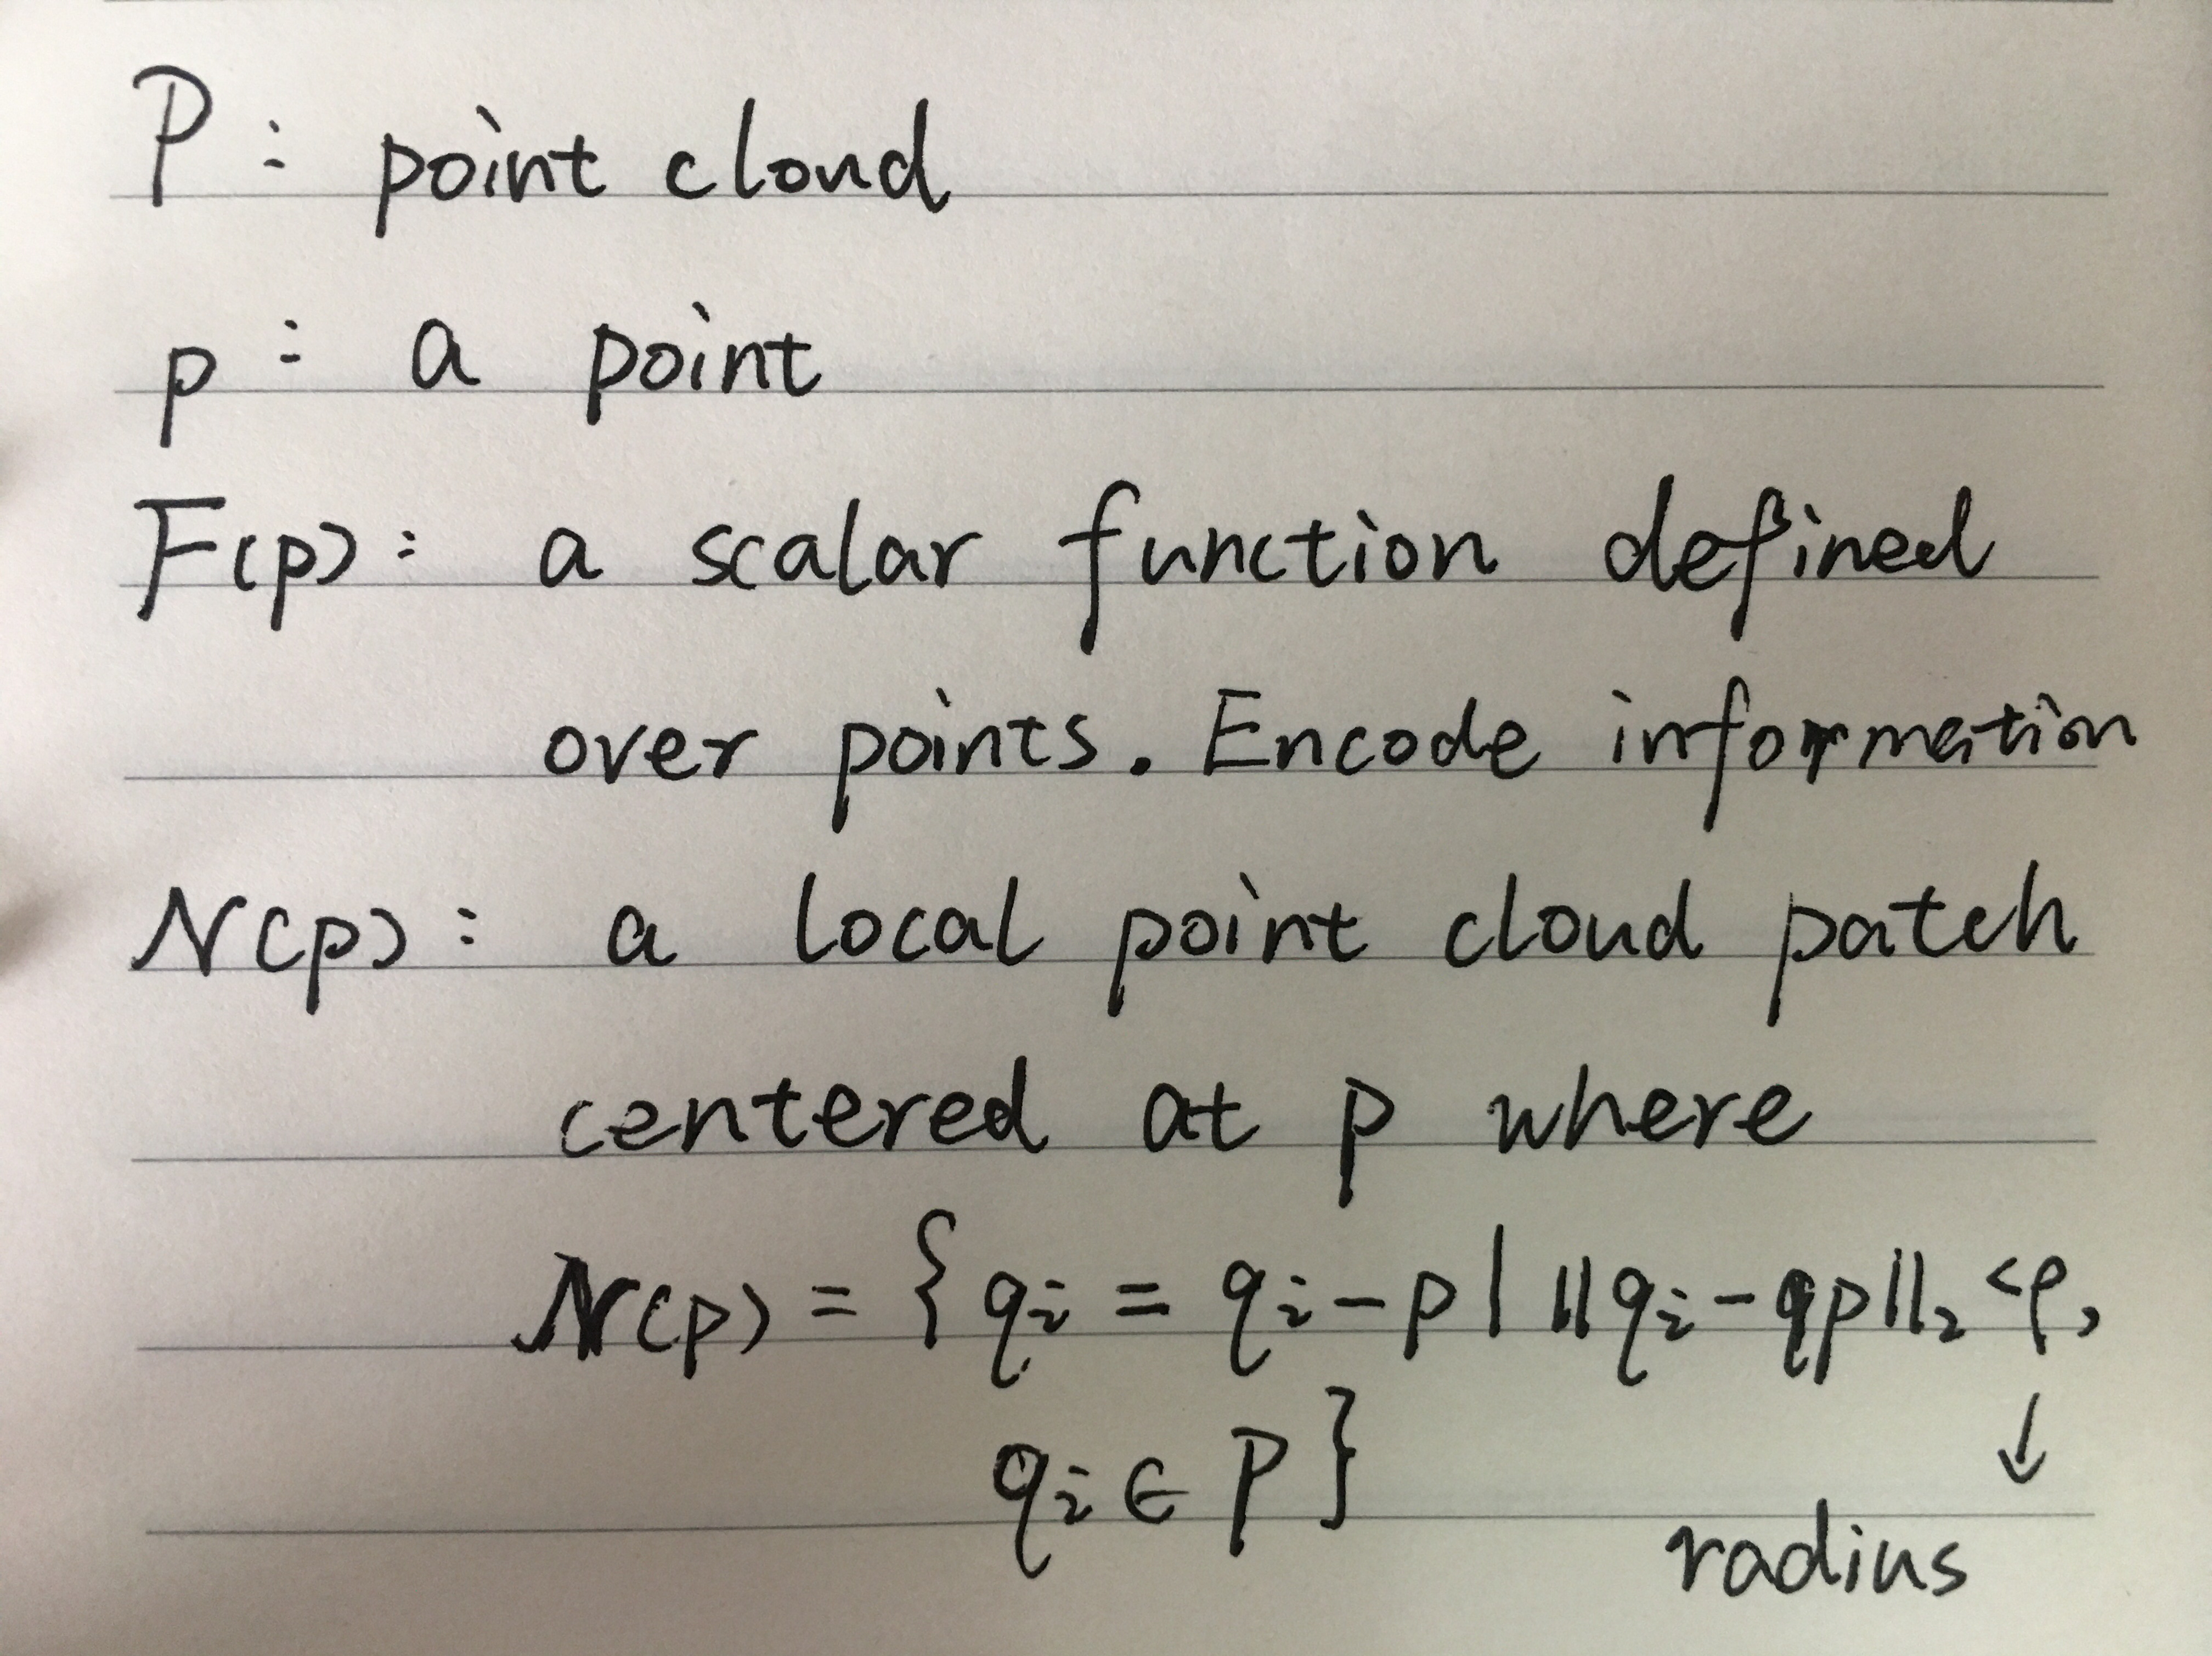 P: point cloud
p: a point
F(p): a scalar function defined
over points. Encode information
N(p): a local point cloud patch
centered at p where
N(p) = { qi = qi - p | ||qi - qp||2 < ρ,
qi ∈ P }
↓
radius